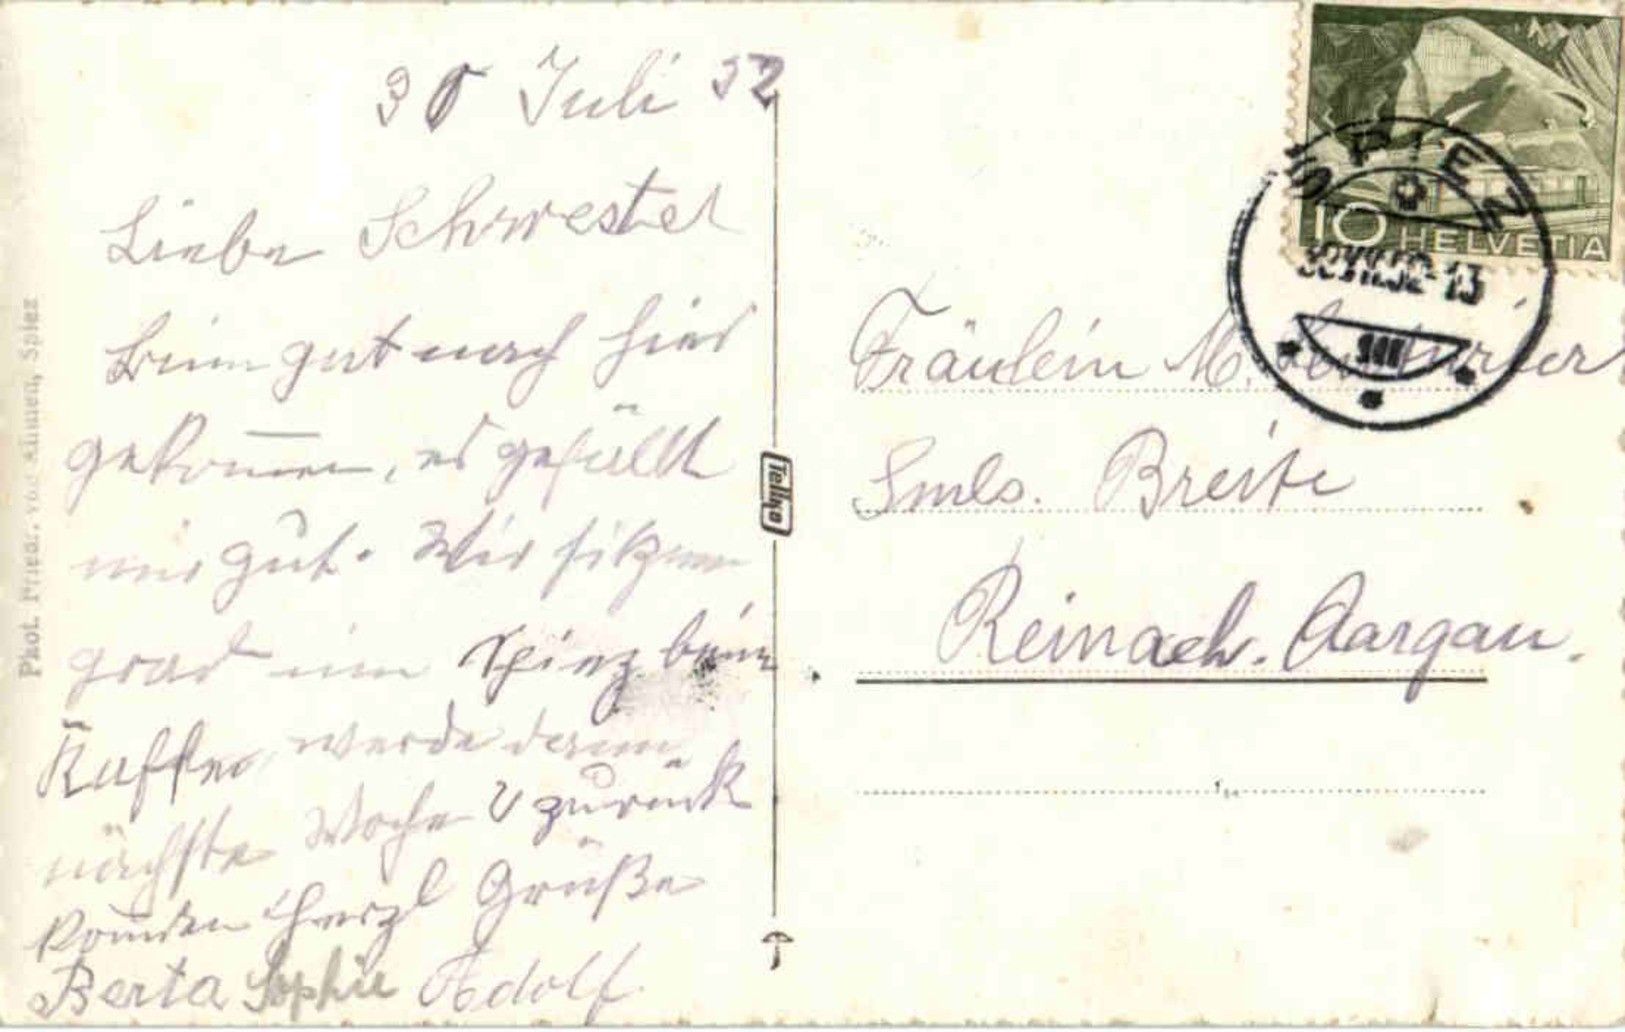 30 Juli 52
Liebe Schwester
Binn gut nach hier
gekommen, es gefällt
mir gut. Wir sitzen
grad in Spiez beim
Kaffee, werde dann
nächste Woche zurück
kommen Herzl Grüße
Berta Sophie Adolf
Phot. Friedr. von Allmen, Spiez
Tellko
10 HELVETIA
SPIEZ
30.VII.52-13
Fräulein M.
Breite
Reinach. Aargau.